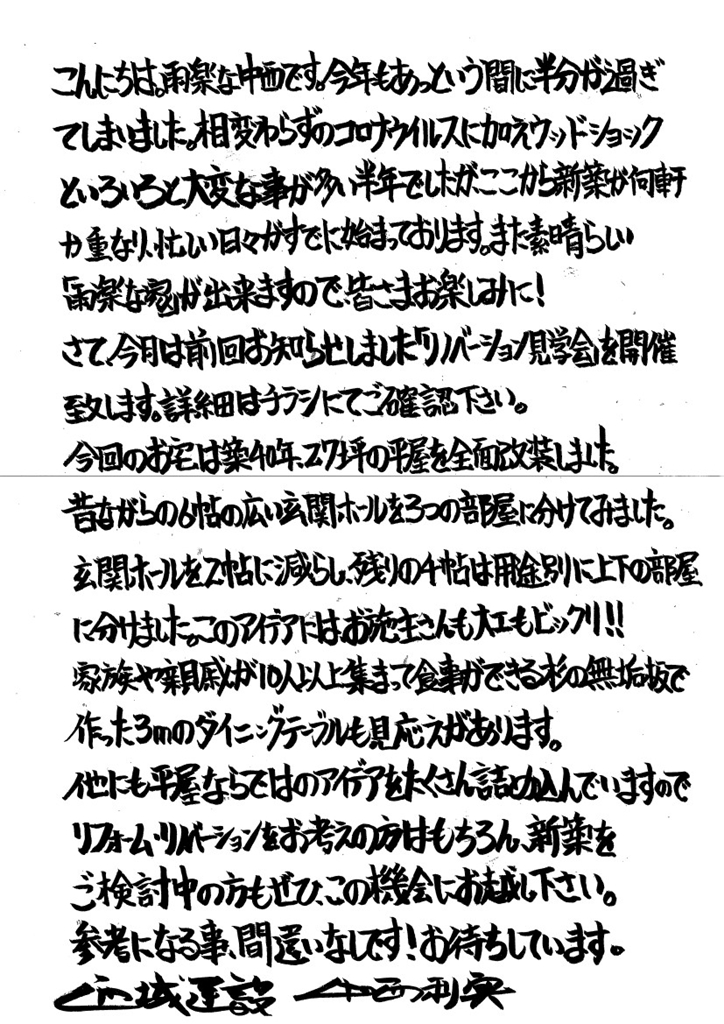 こんにちは。雨楽な中西です。今年もあっという間に半分が過ぎ
てしまいました。相変わらずのコロナウイルスに加えウッドショック
といろいろと大変な事が多い半年でしたが、ここから新築が何軒
か重なり、忙しい日々がすでに始まっております。また素晴らしい
「雨楽な家」が出来ますので、皆さまお楽しみに!
さて、今月は前回お知らせしました「リノベーション見学会」を開催
致します。詳細はチラシにてご確認下さい。
今回のお宅は築40年、27坪の平屋を全面改装しました。
昔ながらの6帖の広い玄関ホールを3つの部屋に分けてみました。
玄関ホールを2帖に減らし、残りの4帖は用途別に上下の部屋
に分けました。このアイデアにはお施主さんも大工もビックリ!!
家族や親戚が10人以上集まって食事ができる杉の無垢板で
作った3mのダイニングテーブルも見応えがあります。
他にも平屋ならではのアイデアをたくさん詰め込んでいますので
リフォーム・リノベーションをお考えの方はもちろん、新築を
ご検討中の方もぜひ、この機会にお越し下さい。
参考になる事、間違いなしです!お待ちしています。
城建設 中西利実